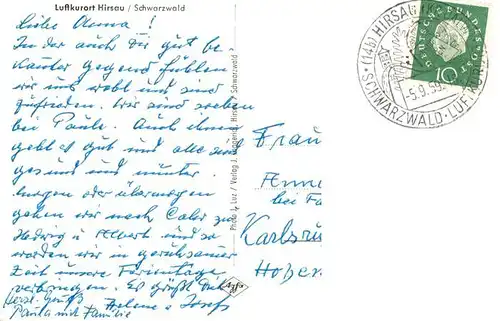 Luftkurort Hirsau / Schwarzwald
Liebe Anna!
In der auch dir gut be
kannten Gegend fühlen
wir uns wohl und sind
zufrieden. Wir sind soeben
bei Paula. Auch ihnen
geht es gut und alle sind
gesund und munter.
Morgen oder übermorgen
gehen wir nach Calw zu
Hedwig u Albert und so
werden wir in geruhsamer
Zeit unsere Ferientage
verbringen. Es grüßt Dich
Helene u Josef
Herzl. Grüße
Paula mit Familie
Photo J. Luz / Verlag J. Hirsau, Schwarzwald
Agfa
DEUTSCHE BUNDESPOST
10
(14b) HIRSAU
-5.9.59
SCHWARZWALD · LUFTKURORT
Frau
bei
Karlsru